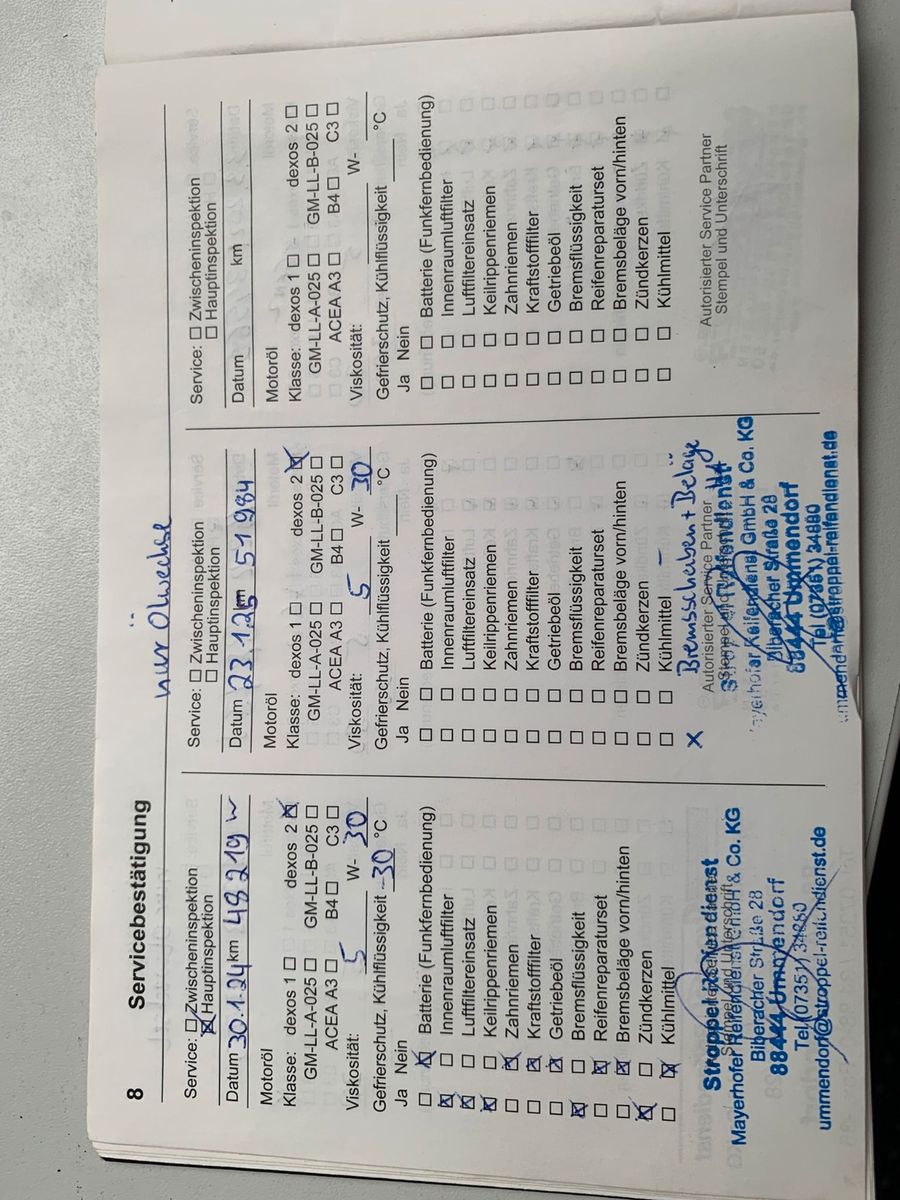 8 Servicebestätigung
Service: Zwischeninspektion
Hauptinspektion
Datum 30.1.24 km 48 219
Motoröl
Klasse: dexos 1 dexos 2
GM-LL-A-025 GM-LL-B-025
ACEA A3 B4 C3
Viskosität: 5 W- 30
Gefrierschutz, Kühlflüssigkeit -30 °C
Ja Nein
Batterie (Funkfernbedienung)
Innenraumluftfilter
Luftfiltereinsatz
Keilrippenriemen
Zahnriemen
Kraftstofffilter
Getriebeöl
Bremsflüssigkeit
Reifenreparaturset
Bremsbeläge vorn/hinten
Zündkerzen
Kühlmittel
Stempel und Unterschrift
Stroppel Reifendienst
Mayerhofer Reifendienst GmbH & Co. KG
Biberacher Straße 28
88444 Ummendorf
Tel. (07351) 34880
ummendorf@stroppel-reifendienst.de
nur Ölwechse
Service: Zwischeninspektion
Hauptinspektion
Datum 23.1.25 km 51 984
Motoröl
Klasse: dexos 1 dexos 2
GM-LL-A-025 GM-LL-B-025
ACEA A3 B4 C3
Viskosität: 5 W- 30
Gefrierschutz, Kühlflüssigkeit °C
Ja Nein
Batterie (Funkfernbedienung)
Innenraumluftfilter
Luftfiltereinsatz
Keilrippenriemen
Zahnriemen
Kraftstofffilter
Getriebeöl
Bremsflüssigkeit
Reifenreparaturset
Bremsbeläge vorn/hinten
Zündkerzen
Kühlmittel
x Bremsscheiben + Beläge
Autorisierter Service Partner
Stempel und
Reifendienst
Mayerhofer Reifendienst GmbH & Co. KG
Biberacher Straße 28
88444 Ummendorf
Tel. (07351) 34880
ummendorf@stroppel-reifendienst.de
Service: Zwischeninspektion
Hauptinspektion
Datum km
Motoröl
Klasse: dexos 1 dexos 2
GM-LL-A-025 GM-LL-B-025
ACEA A3 B4 C3
Viskosität: W-
Gefrierschutz, Kühlflüssigkeit °C
Ja Nein
Batterie (Funkfernbedienung)
Innenraumluftfilter
Luftfiltereinsatz
Keilrippenriemen
Zahnriemen
Kraftstofffilter
Getriebeöl
Bremsflüssigkeit
Reifenreparaturset
Bremsbeläge vorn/hinten
Zündkerzen
Kühlmittel
Autorisierter Service Partner
Stempel und Unterschrift